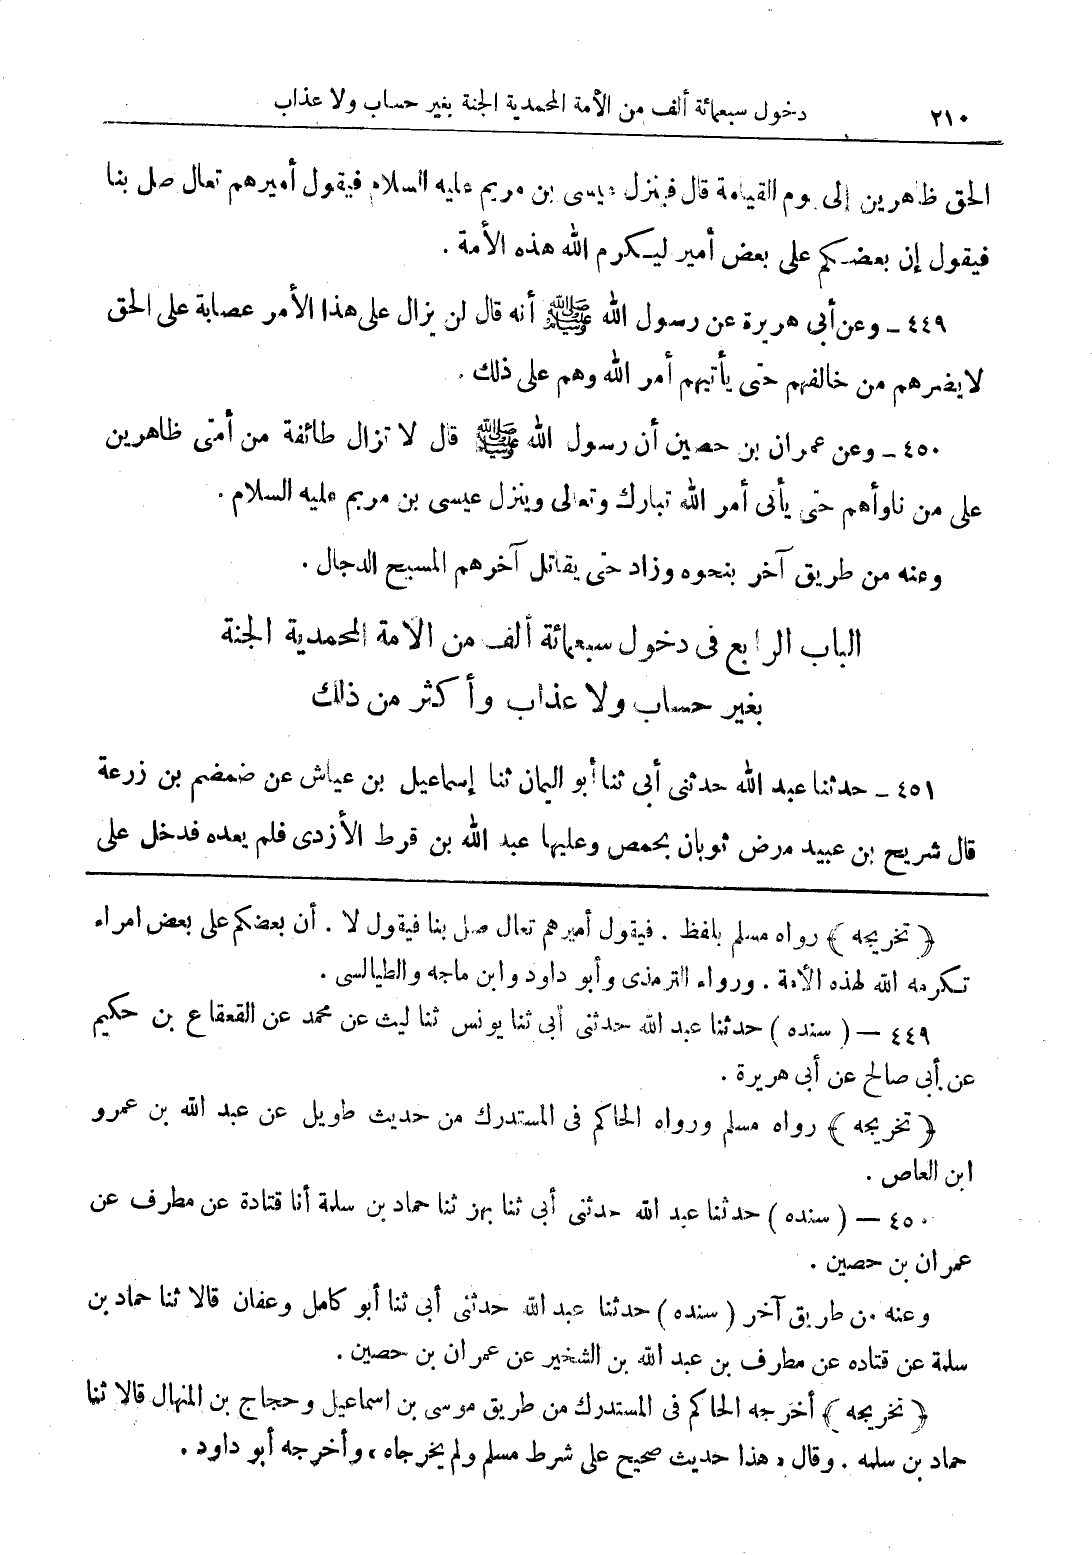 ٢١٠ دخول سبعمائة ألف من الأمة المحمدية الجنة بغير حساب ولا عذاب
الحق ظاهرين إلى يوم القيامة قال فينزل عيسى بن مريم عليه السلام فيقول أميرهم تعال صل بنا
فيقول إن بعضكم على بعض أمير ليكرم الله هذه الأمة .
٤٤٩ ـ وعن أبي هريرة عن رسول الله ﷺ أنه قال لن يزال على هذا الأمر عصابة على الحق
لا يضرهم من خالفهم حتى يأتيهم أمر الله وهم على ذلك .
٤٥٠ ـ وعن عمران بن حصين أن رسول الله ﷺ قال لا تزال طائفة من أمتى ظاهرين
على من ناوأهم حتى يأتى أمر الله تبارك وتعالى وينزل عيسى بن مريم عليه السلام .
وعنه من طريق آخر بنحوه وزاد حتى يقاتل آخرهم المسيح الدجال .
الباب الرابع فى دخول سبعمائة ألف من الامة المحمدية الجنة
بغير حساب ولا عذاب وأكثر من ذلك
٤٥١ ـ حدثنا عبد الله حدثنى أبى ثنا أبو اليمان ثنا إسماعيل بن عياش عن ضمضم بن زرعة
قال شريح بن عبيد مرض ثوبان بحمص وعليها عبد الله بن قرط الأزدى فلم يعده فدخل على
﴿ تخريجه ﴾ رواه مسلم بلفظ . فيقول أميرهم تعال صل بنا فيقول لا . أن بعضكم على بعض امراء
تكرمه الله لهذه الأمة . ورواء الترمذى وأبو داود وابن ماجه والطيالسى .
٤٤٩ — ( سنده ) حدثنا عبد الله حدثنى أبى ثنا يونس ثنا ليث عن محمد عن القعقاع بن حكيم
عن أبى صالح عن أبى هريرة .
﴿ تخريجه ﴾ رواه مسلم ورواه الحاكم فى المستدرك من حديث طويل عن عبد الله بن عمرو
ابن العاص .
٤٥٠ — ( سنده ) حدثنا عبد الله حدثنى أبى ثنا بهز ثنا حماد بن سلمة أنا قتادة عن مطرف عن
عمران بن حصين .
وعنه من طريق آخر ( سنده ) حدثنا عبد الله حدثنى أبى ثنا أبو كامل وعفان قالا ثنا حماد بن
سلمة عن قتاده عن مطرف بن عبد الله بن الشخير عن عمران بن حصين .
﴿ تخريجه ﴾ أخرجه الحاكم فى المستدرك من طريق موسى بن اسماعيل وحجاج بن المنهال قالا ثنا
حماد بن سلمه . وقال ، هذا حديث صحيح على شرط مسلم ولم يخرجاه ، وأخرجه أبو داود .